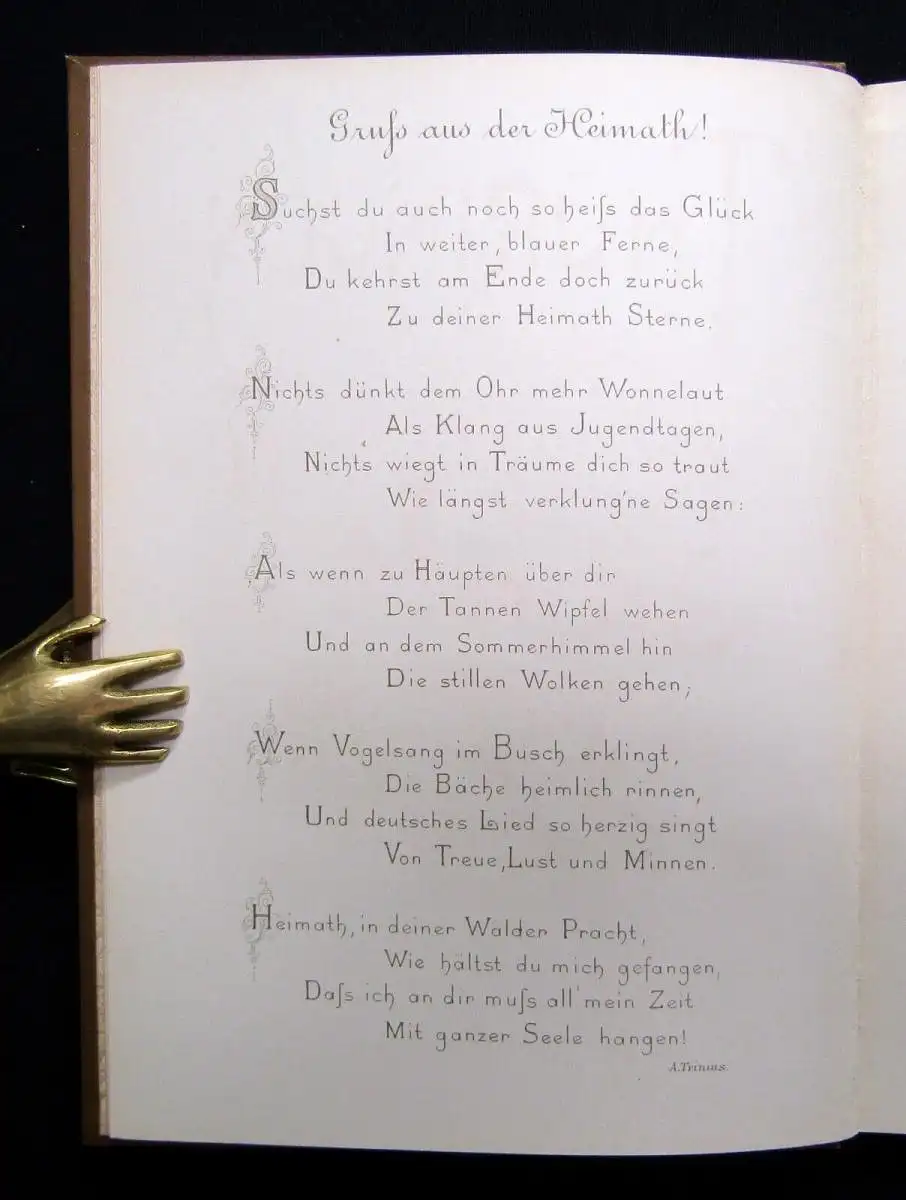 Gruſs aus der Heimath!
Suchst du auch noch so heiſs das Glück
In weiter, blauer Ferne,
Du kehrst am Ende doch zurück
Zu deiner Heimath Sterne.
Nichts dünkt dem Ohr mehr Wonnelaut
Als Klang aus Jugendtagen,
Nichts wiegt in Träume dich so traut
Wie längst verklung'ne Sagen:
Als wenn zu Häupten über dir
Der Tannen Wipfel wehen
Und an dem Sommerhimmel hin
Die stillen Wolken gehen;
Wenn Vogelsang im Busch erklingt,
Die Bäche heimlich rinnen,
Und deutsches Lied so herzig singt
Von Treue, Lust und Minnen.
Heimath, in deiner Walder Pracht,
Wie hältst du mich gefangen,
Daſs ich an dir muſs all' mein Zeit
Mit ganzer Seele hangen!
A. Trinius.